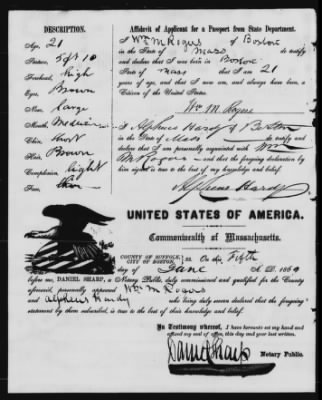 DESCRIPTION.
Age, 21
Stature, 5 ft 10
Forehead, High
Eyes, Brown
Nose, Large
Mouth, Medium
Chin, Short
Hair, Brown
Complexion, light
Face, thin
Affidavit of Applicant for a Passport from State Department.
I Wm M Rogers of Boston
in the State of Mass do testify
and declare that I was born in Boston
State of Mass that I am 21
years of age, and that I am, and always have been, a
Citizen of the United States.
Wm M. Rogers
I Alpheus Hardy of Boston
in the State of Mass do testify
and declare that I am personally acquainted with Wm
M Rogers and that the foregoing declaration by
him signed is true to the best of my knowledge and belief.
Alpheus Hardy
UNITED STATES OF AMERICA.
Commonwealth of Massachusetts.
COUNTY OF SUFFOLK,
CITY OF BOSTON, } ss. On this Fifth
day of June A. D. 1869
before me, DANIEL SHARP, a Notary Public, duly commissioned and qualified for the County
aforesaid, personally appeared Wm M Rogers
and Alpheus Hardy who being duly sworn declared that the foregoing
statement by them subscribed, is true to the best of their knowledge and belief.
In Testimony whereof, I have hereunto set my hand and
affixed my seal of office, this day and year last written.
Daniel Sharp
Notary Public.